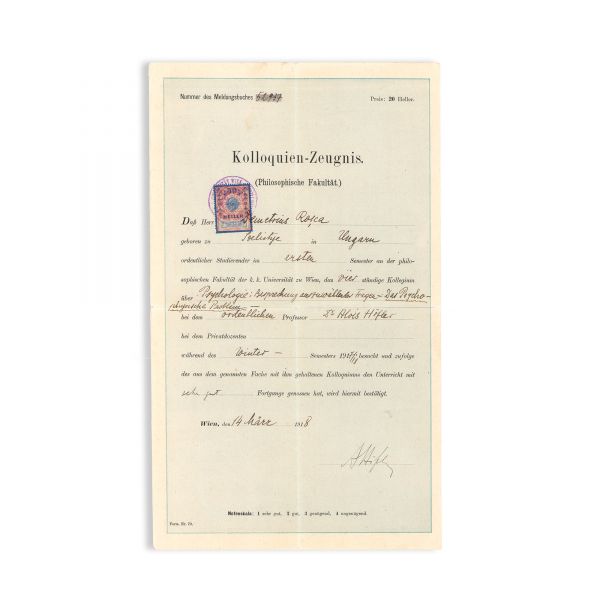 Nummer des Meldungsbuches
Preis: 20 Heller.
Kolloquien-Zeugnis.
(Philosophische Fakultät.)
HELLER
Daß Herr Demetrius Roșca
geboren zu in Ungarn
ordentlicher Studierender im ersten Semester an der philo-
sophischen Fakultät der k. k. Universität zu Wien, das vier stündige Kollegium
über Psychologie: Besprechung ausgewählter Fragen – Das Psycho-
physische Problem –
bei dem ordentlichen Professor Dr Alois Höfler
bei dem Privatdozenten
während des Winter – Semesters 1917/18 besucht und zufolge
des aus dem genannten Fache mit ihm gehaltenen Kolloquiums den Unterricht mit
sehr gut Fortgange genossen hat, wird hiermit bestätigt.
Wien, den 14 März 1918
A Höfler
Notenskala: 1 sehr gut, 2 gut, 3 genügend, 4 ungenügend.
Form. Nr. 70.